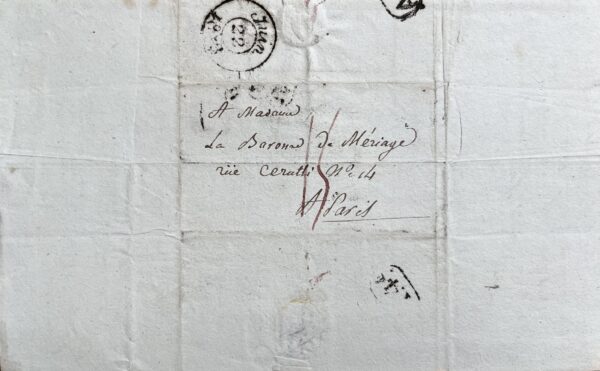 Juin
22
A Madame
La Baronne de Mériage
rüe Cerutti N.º 14
A Paris
15